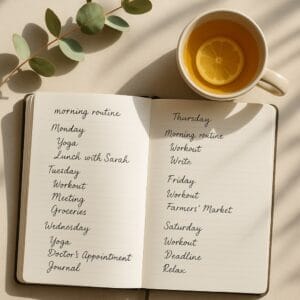 morning routine
Monday
Yoga
Lunch with Sarah
Tuesday
Workout
Meeting
Groceries
Wednesday
Yoga
Doctor's Appointment
Journal
Thursday
Morning routine
Workout
Write
Friday
Workout
Farmers' Market
Saturday
Workout
Deadline
Relax